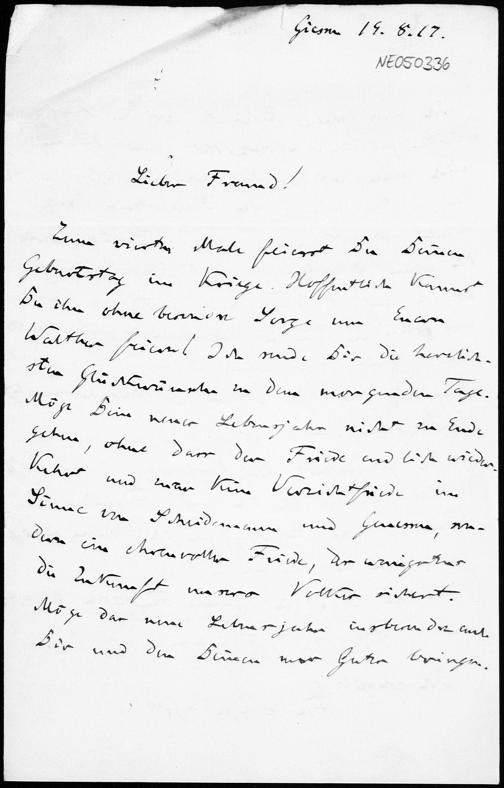 Giessen 19. 8. 17.
NE050336
Lieber Freund!
Zum vierten Male feierst Du Deinen
Geburtstag im Kriege. Hoffentlich kannst
Du ihn ohne besondere Sorge um Euern
Walther feiern! Ich sende Dir die herzlich-
sten Glückwünsche zu dem morgenden Tage.
Möge Dein neues Lebensjahr nicht zu Ende
gehen, ohne dass der Friede endlich wieder-
kehrt und zwar kein Verzichtfriede im
Sinne von Scheidemann und Genossen, son-
dern ein ehrenvoller Friede, der wenigstens
die Zukunft unseres Volkes sichert.
Möge das neue Lebensjahr insbesondere auch
Dir und den Deinen nur Gutes bringen.